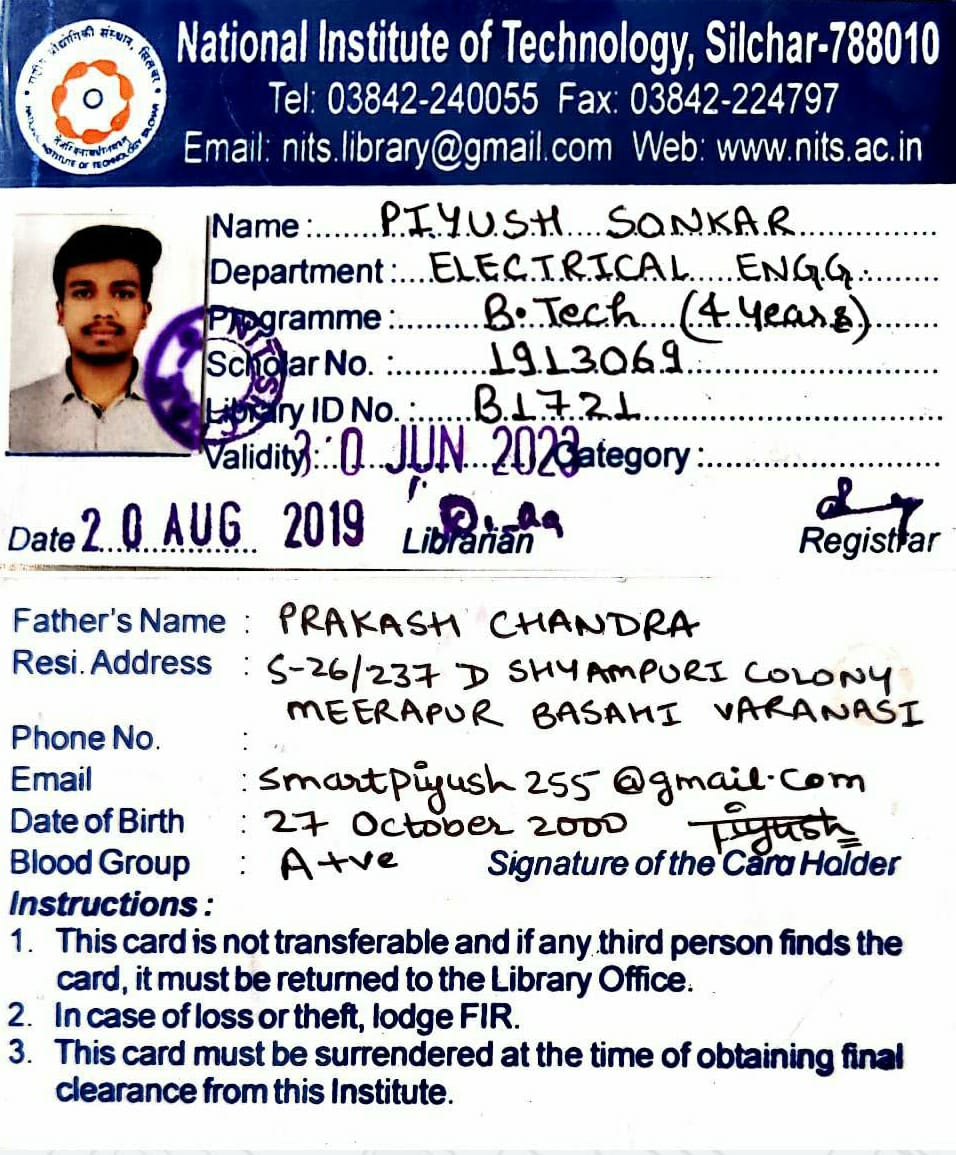 National Institute of Technology, Silchar-788010
Tel: 03842-240055 Fax: 03842-224797
Email: nits.library@gmail.com Web: www.nits.ac.in
Name :.......PIYUSH SONKAR
Department :...ELECTRICAL ENGG.
Programme :.........B.Tech (4 Years)
Scholar No. :..........1913069
Library ID No. :......B1721
Validity :30 JUN 2023 Category :
Date 20 AUG 2019 Librarian Registrar
Father's Name : PRAKASH CHANDRA
Resi. Address : S-26/237 D SHYAMPURI COLONY
MEERAPUR BASAHI VARANASI
Phone No. :
Email : smartpiyush255@gmail.com
Date of Birth : 27 October 2000 Piyush
Blood Group : A+ve Signature of the Card Holder
Instructions :
1. This card is not transferable and if any third person finds the
card, it must be returned to the Library Office.
2. In case of loss or theft, lodge FIR.
3. This card must be surrendered at the time of obtaining final
clearance from this Institute.